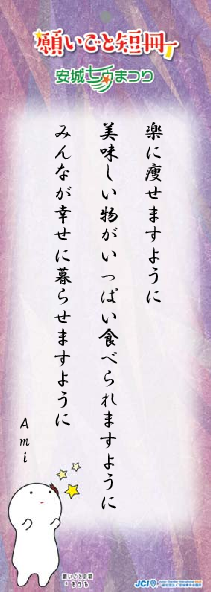 願いごと短冊
安城七夕まつり
楽に痩せますように
美味しい物がいっぱい食べられますように
みんなが幸せに暮らせますように
Ami
願いごと短冊
JCI